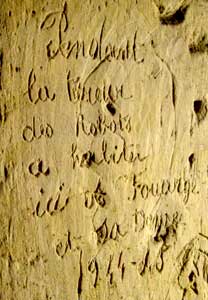 Pendant
la
des Robots
a habité
ici Fouarge
et sa Dame
1944-45